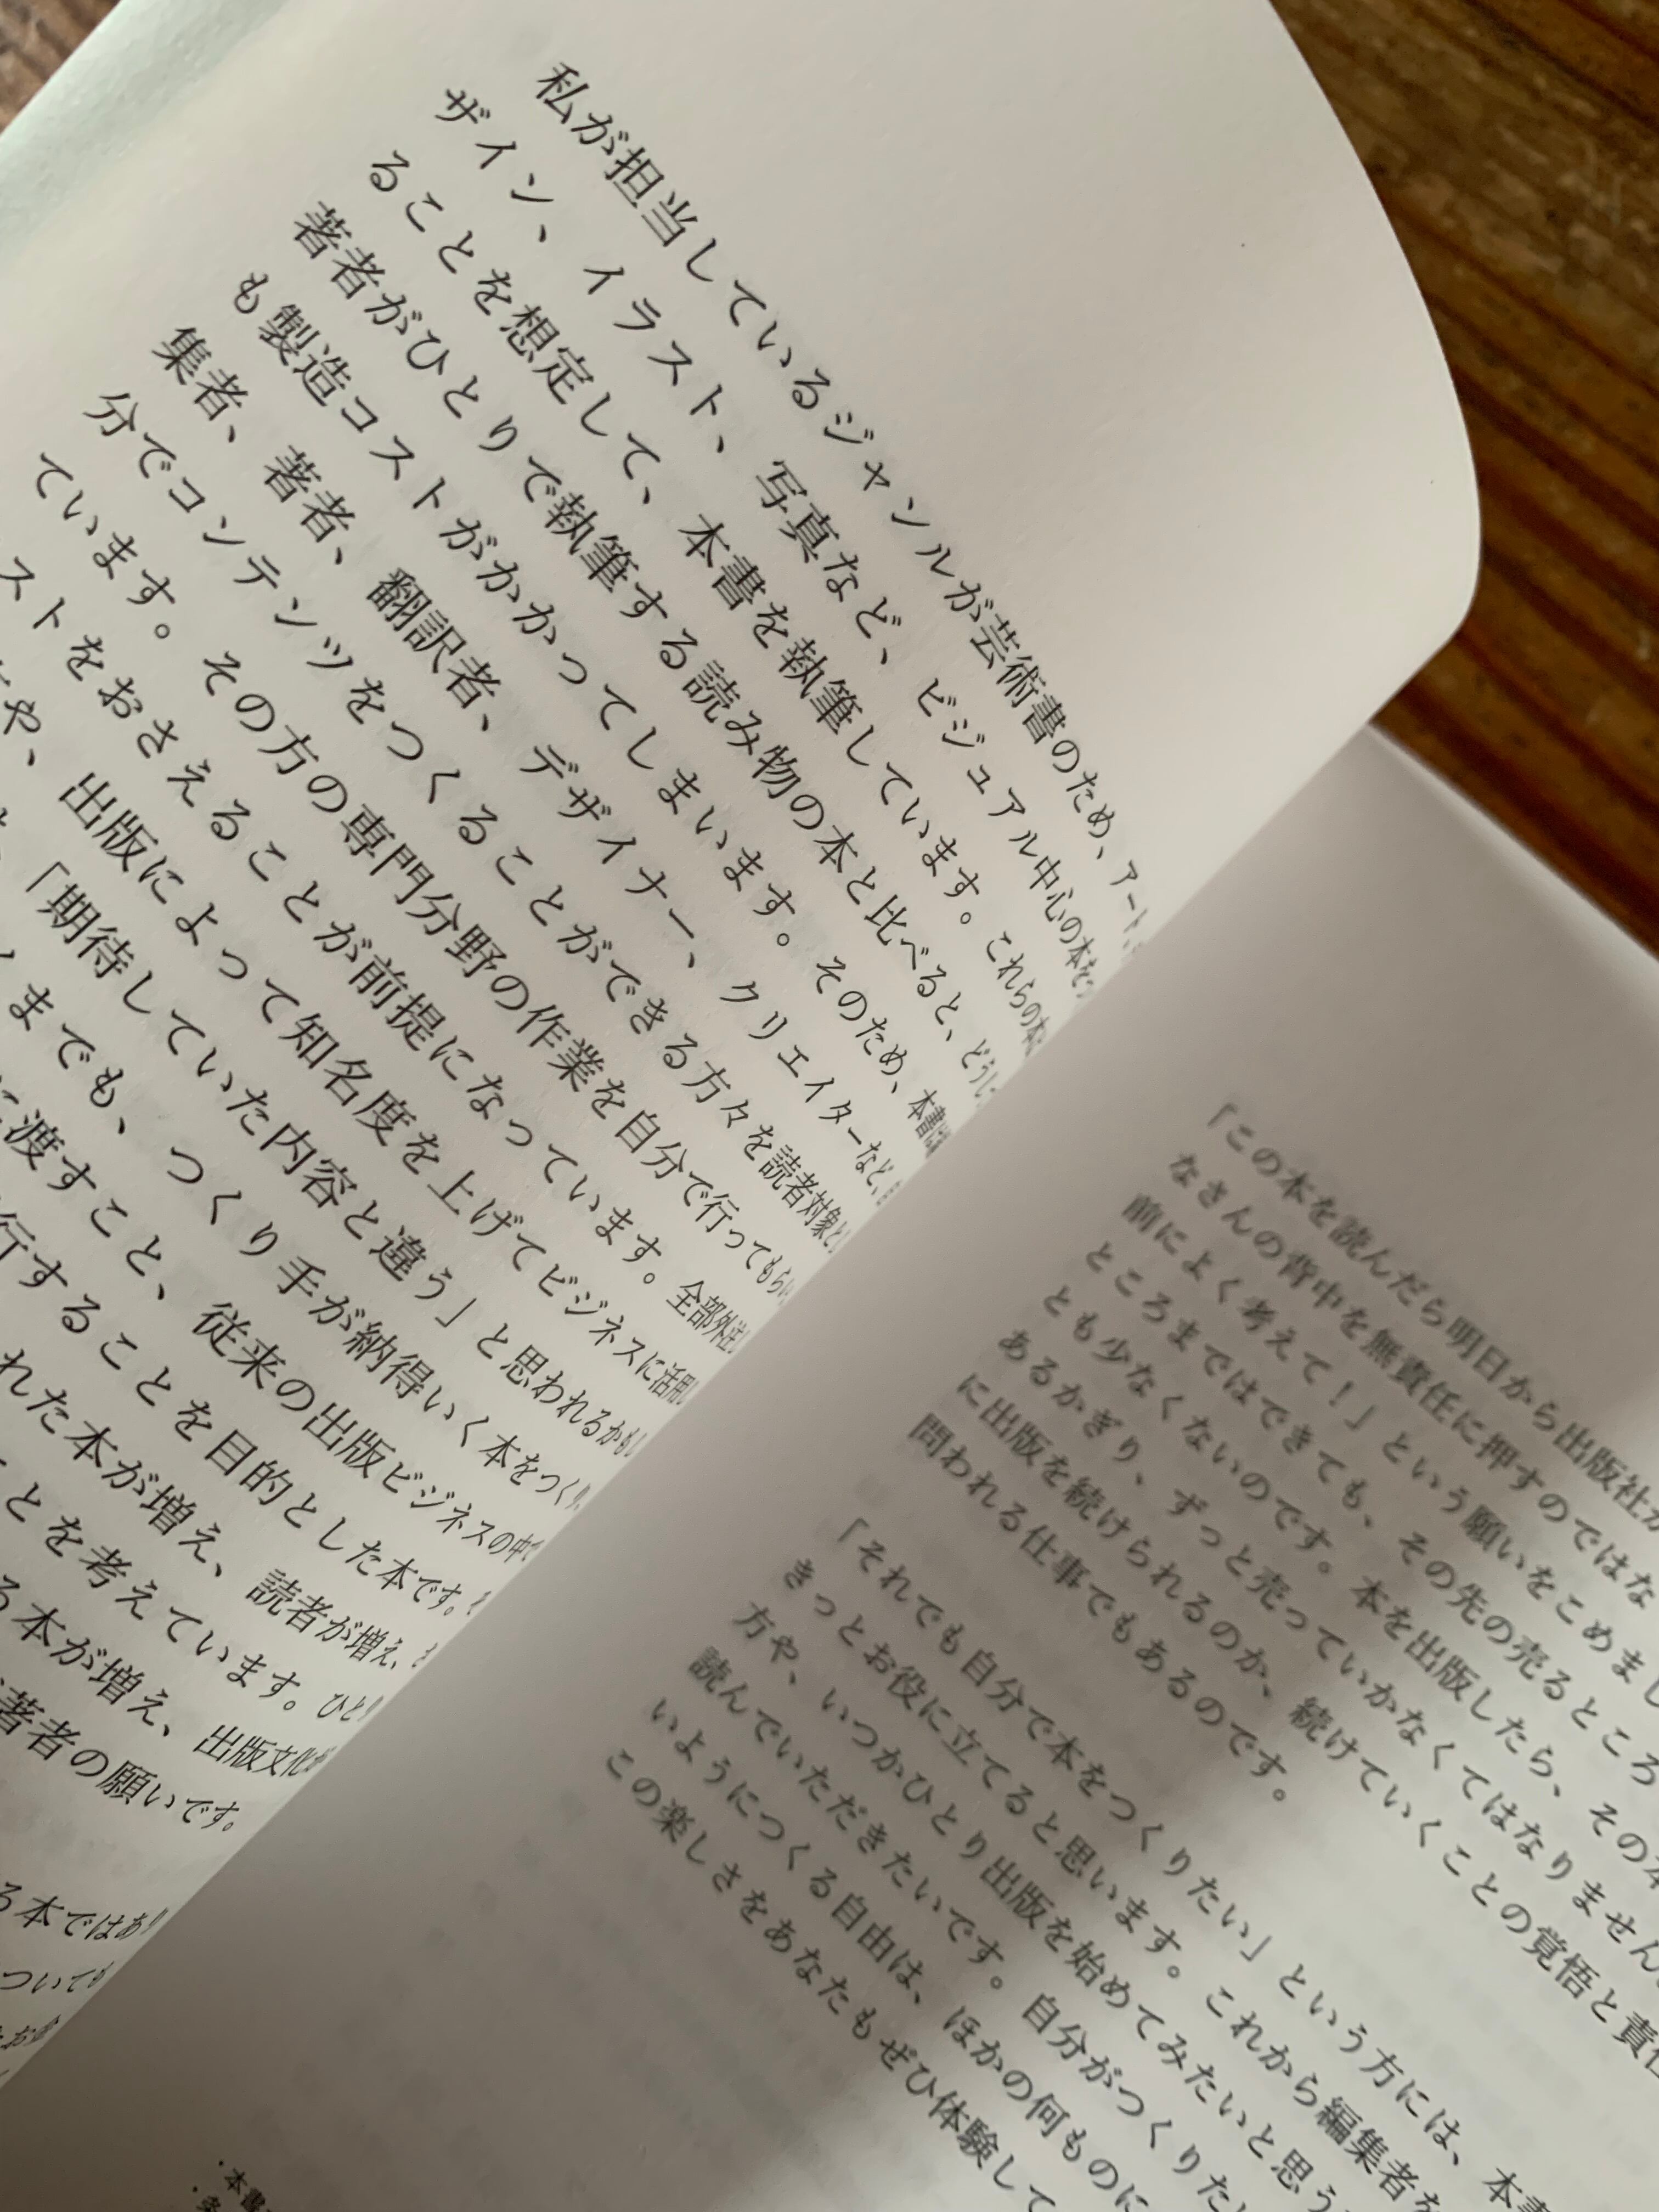 私が担当しているジャンルが芸術書のため、アート
ザイン、イラスト、写真など、ビジュアル中心の本を
ることを想定して、本書を執筆しています。これらの本
著者がひとりで執筆する読み物の本と比べると、どうし
も製造コストがかかってしまいます。そのため、本書は
集者、著者、翻訳者、デザイナー、クリエイターなど、
分でコンテンツをつくることができる方々を読者対象と
ています。その方の専門分野の作業を自分で行ってもらい
ストをおさえることが前提になっています。全部外注
や、出版によって知名度を上げてビジネスに活用し
「期待していた内容と違う」と思われるかもし
までも、つくり手が納得いく本をつくり
渡すこと、従来の出版ビジネスの中で
行することを目的とした本です。
れた本が増え、読者が増え、
とを考えています。ひとり
る本が増え、出版文化が
著者の願いです。
る本ではあり
ついても
「この本を読んだら明日から出版社が
なさんの背中を無責任に押すのではな
前によく考えて！」という願いをこめまし
ところまではできても、その先の売るところ
とも少なくないのです。本を出版したら、その本
あるかぎり、ずっと売っていかなくてはなりません
に出版を続けられるのか、続けていくことの覚悟と責任
問われる仕事でもあるのです。
「それでも自分で本をつくりたい」という方には、本書
きっとお役に立てると思います。これから編集者を
方や、いつかひとり出版を始めてみたいと思う
読んでいただきたいです。自分がつくりた
いようにつくる自由は、ほかの何ものに
この楽しさをあなたもぜひ体験して
・本書